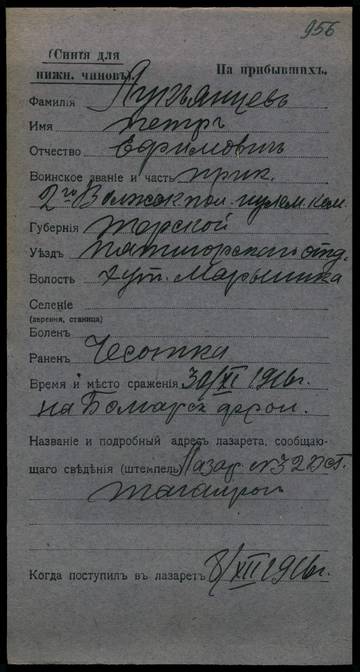 956
(Синія для
нижн. чиновъ).
На прибывшихъ.
Фамилія
Имя Петръ
Отчество Ефимовичъ
Воинское званіе и часть прик.
2го Волжск. пол. пулем. ком.
Губернія Терской
Уѣздъ Пятигорскаго отд.
Волость хут. Марьинка
Селеніе
(деревня, станица)
Боленъ
Раненъ Чесотка
Время и мѣсто сраженія 30/XI 1916г.
на фрон.
Названіе и подробный адресъ лазарета, сообщаю-
щаго свѣдѣнія (штемпель) Лазар. №3
Таганрог
Когда поступилъ въ лазаретъ 8/XII 1916г.